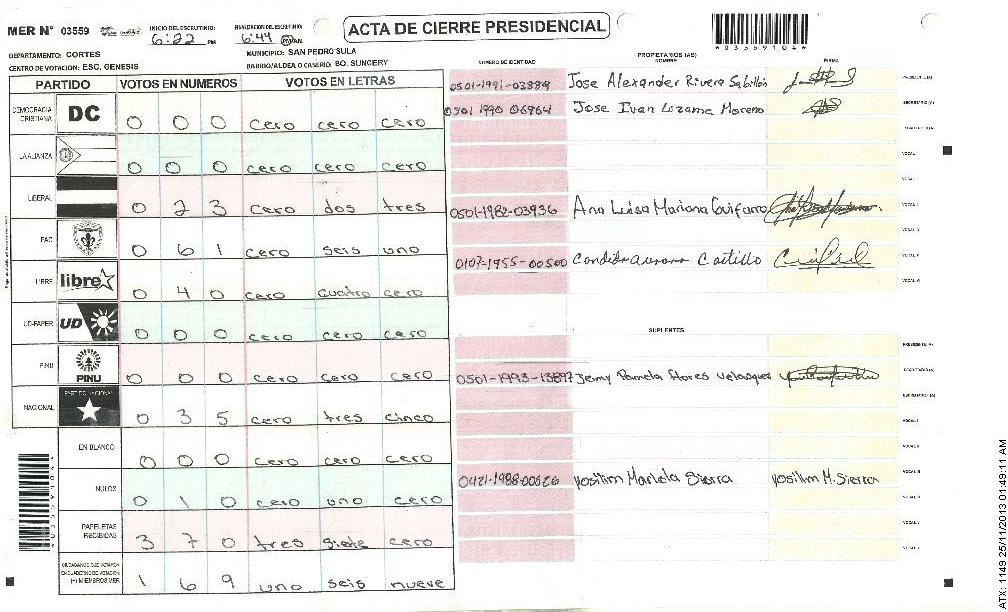 MER N° 03559
INICIO DEL ESCRUTINIO:
6:22 PM
FINALIZACION DEL ESCRUTINIO:
6:44 PM AM
ACTA DE CIERRE PRESIDENCIAL
03559104
DEPARTAMENTO: CORTES
MUNICIPIO: SAN PEDRO SULA
CENTRO DE VOTACION: ESC. GENESIS
BARRIO/ALDEA O CASERIO: BO. SUNCERY
PARTIDO VOTOS EN NUMEROS VOTOS EN LETRAS
DEMOCRACIA CRISTIANA DC 0 0 0 cero cero cero
LA ALIANZA 0 0 0 cero cero cero
LIBERAL 0 2 3 cero dos tres
PAC 0 6 1 cero seis uno
LIBRE libre 0 4 0 cero cuatro cero
UD-FAPER UD 0 0 0 cero cero cero
PINU PINU 0 0 0 cero cero cero
NACIONAL PARTIDO NACIONAL 0 3 5 cero tres cinco
EN BLANCO 0 0 0 cero cero cero
NULOS 0 1 0 cero uno cero
PAPELETAS RECIBIDAS 3 7 0 tres siete cero
CIUDADANOS QUE VOTARON EN CUADERNO DE VOTACION (+) MIEMBROS MER 1 6 9 uno seis nueve
PROPIETARIOS (AS)
NUMERO DE IDENTIDAD NOMBRE FIRMA
0501-1991-03889 Jose Alexander Rivera Sabillón PRESIDENTE(A)
0501 1990 06864 Jose Ivan Lozama Moreno SECRETARIO (A)
0501-1982-03936 Ana Luisa Mariana Guifarro
0107-1955-00500 Candida aurora Castillo
SUPLENTES
PRESIDENTE (A)
0501-1993-13897 Jenny Pamela Flores Velasquez
0421-1988-00626 yosilim Mariela Sierra yosilim M. Sierra
03559104
ATX: 1149 25/11/2013 01:49:11 AM